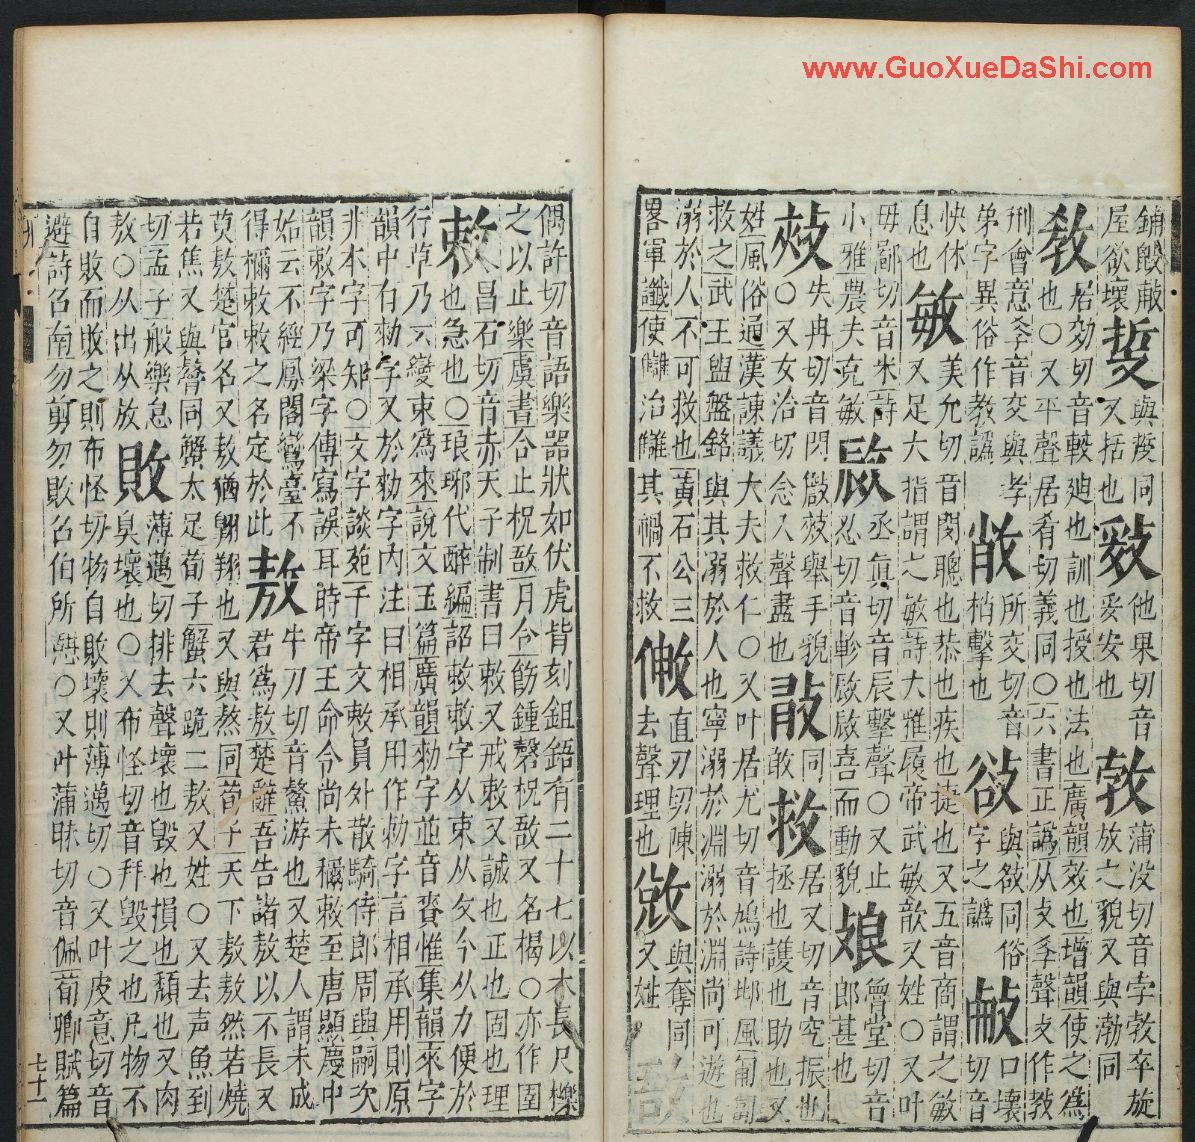 www.GuoXueDaShi.com
鋪毀敲
屋欲壞 與𢻹同又括也 他果切音妥安也 敦 蒲没切音孛敦卒旋放之貌又與渤同
教 居効切音較廸也訓也授也法也廣韻效也增韻使之爲也〇又平聲居肴切義同〇六書正譌从攴孝聲攴作教
刑會意孝音交與孝所交切音
弟字異俗作教譌 㪣 梢擊也 㰸 與㪉同俗字之譌 敝 口壞切音
快休息也 敏 美允切音閔聰也恭也疾也捷也又五音商謂之敏又足大指謂之敏詩大雅履帝武敏歆又姓〇又叶
毋鄙切音米詩 丞眞切音辰擊聲〇又止 曾堂切音
小雅農夫克敏 忍切音軫啟啟喜而動貌 郎甚也
㪎 失冉切音閃㪎舉手貌〇又女洽切念入聲盡也 敢同 救 居又切音究振也拯也護也助也又
姓風俗通漢諫議大夫救仁〇又叶居尤切音鳩詩邶風匍匐
救之武王盥盤銘與其溺於人也寧溺於淵溺於淵尚可遊也
溺於人不可救也黃石公三 直刃切陳 敚 與奪同又姓
畧軍讖使讎治讎其禍不救 去聲理也 敔
偶許切音語樂器狀如伏虎皆刻鉏鋙有二十七以木長尺櫟
之以止樂虞書合止柷敔月令飭鍾磬柷敔又名楬〇亦作圉
敕 昌石切音赤天子制書曰敕又戒敕又誠也正也固也理也急也〇琅琊代醉編詔敕敕字从束从攵今从力便於
行草乃一變束爲來說文玉篇廣韻勑字並音賚惟集韻來字
韻中有勑字又於勑字内注曰相承用作勑字言相承用則原
非本字可知〇文字談苑千字文敕員外散騎侍郎周興嗣次
韻敕字乃梁字傳寫誤耳時帝王命令尚未稱敕至唐顯慶中
始云不經鳳閣鸞臺不得稱敕敕之名定於此 敖 牛刀切音鰲游也又楚人謂未成君爲敖楚辭吾告諸敖以不長又
莫敖楚官名又敖猶翺翔也又與熬同荀子天下敖敖然若燒
若焦又與螯同蟹大足荀子蟹六跪二敖又姓〇又去声魚到
切孟子般樂怠敖〇从出从放 敗 薄邁切排去聲壞也毁也損也頹也又肉臭壞也〇又布怪切音拜毁之也凡物不
自敗而敗之則布怪切物自敗壞則薄邁切〇又叶皮意切音
避詩召南勿剪勿敗召伯所憩〇又叶蒲昧切音佩荀卿賦篇
七十一